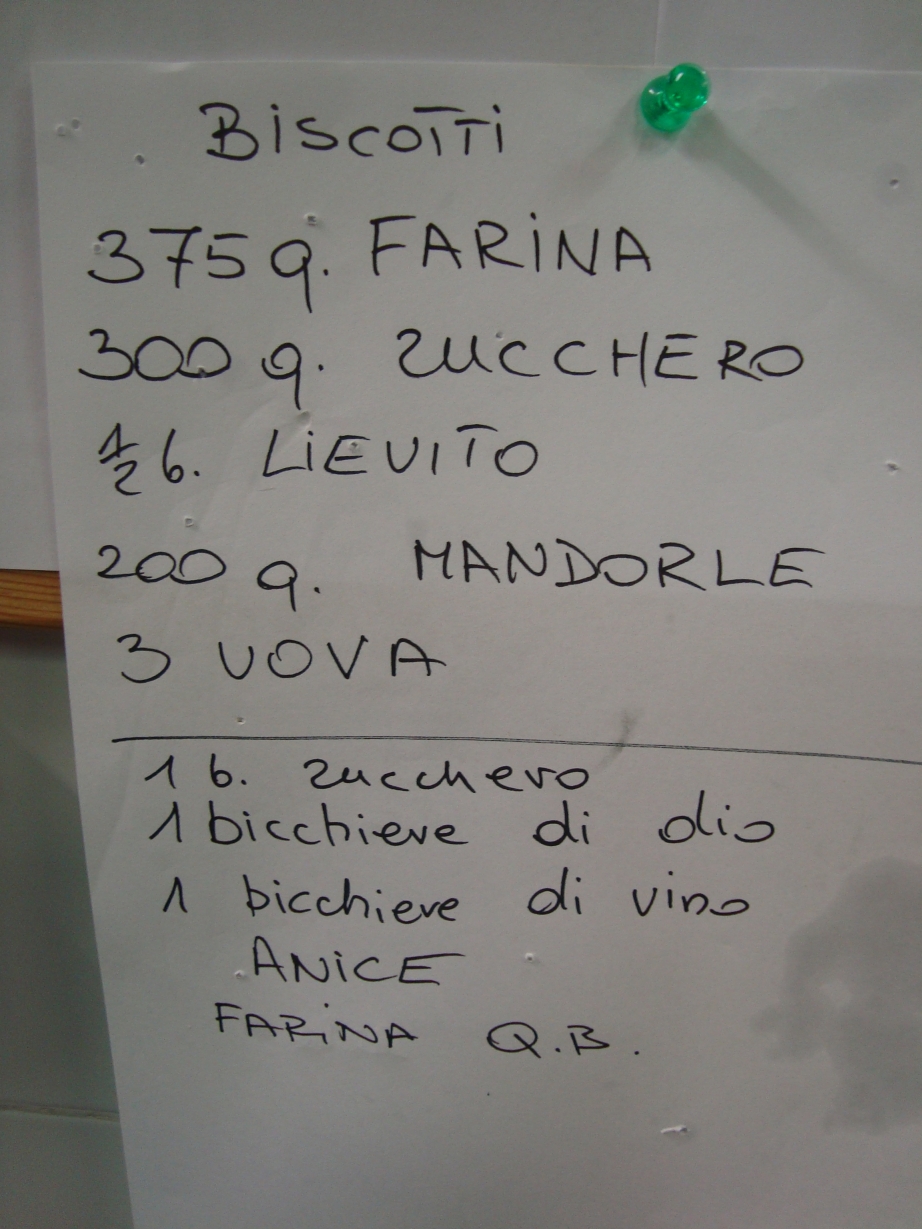 BiscoTTi
375 g. FARiNA
300 g. ZUCCHERO
1/2 b. LiEVITO
200 g. MANDORLE
3 UOVA
1 b. zucchero
1 bicchiere di olio
1 bicchiere di vino
ANiCE
FARiNA Q.B.